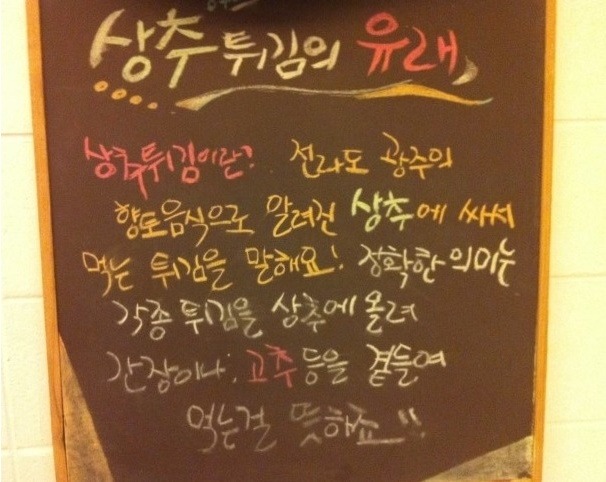 상추 튀김의 유래
상추튀김이란? 전라도 광주의
향토음식으로 알려진 상추에 싸서
먹는 튀김을 말해요! 정확한 의미는
각종 튀김을 상추에 올려
간장이나, 고추 등을 곁들여
먹는걸 뜻해죠!!